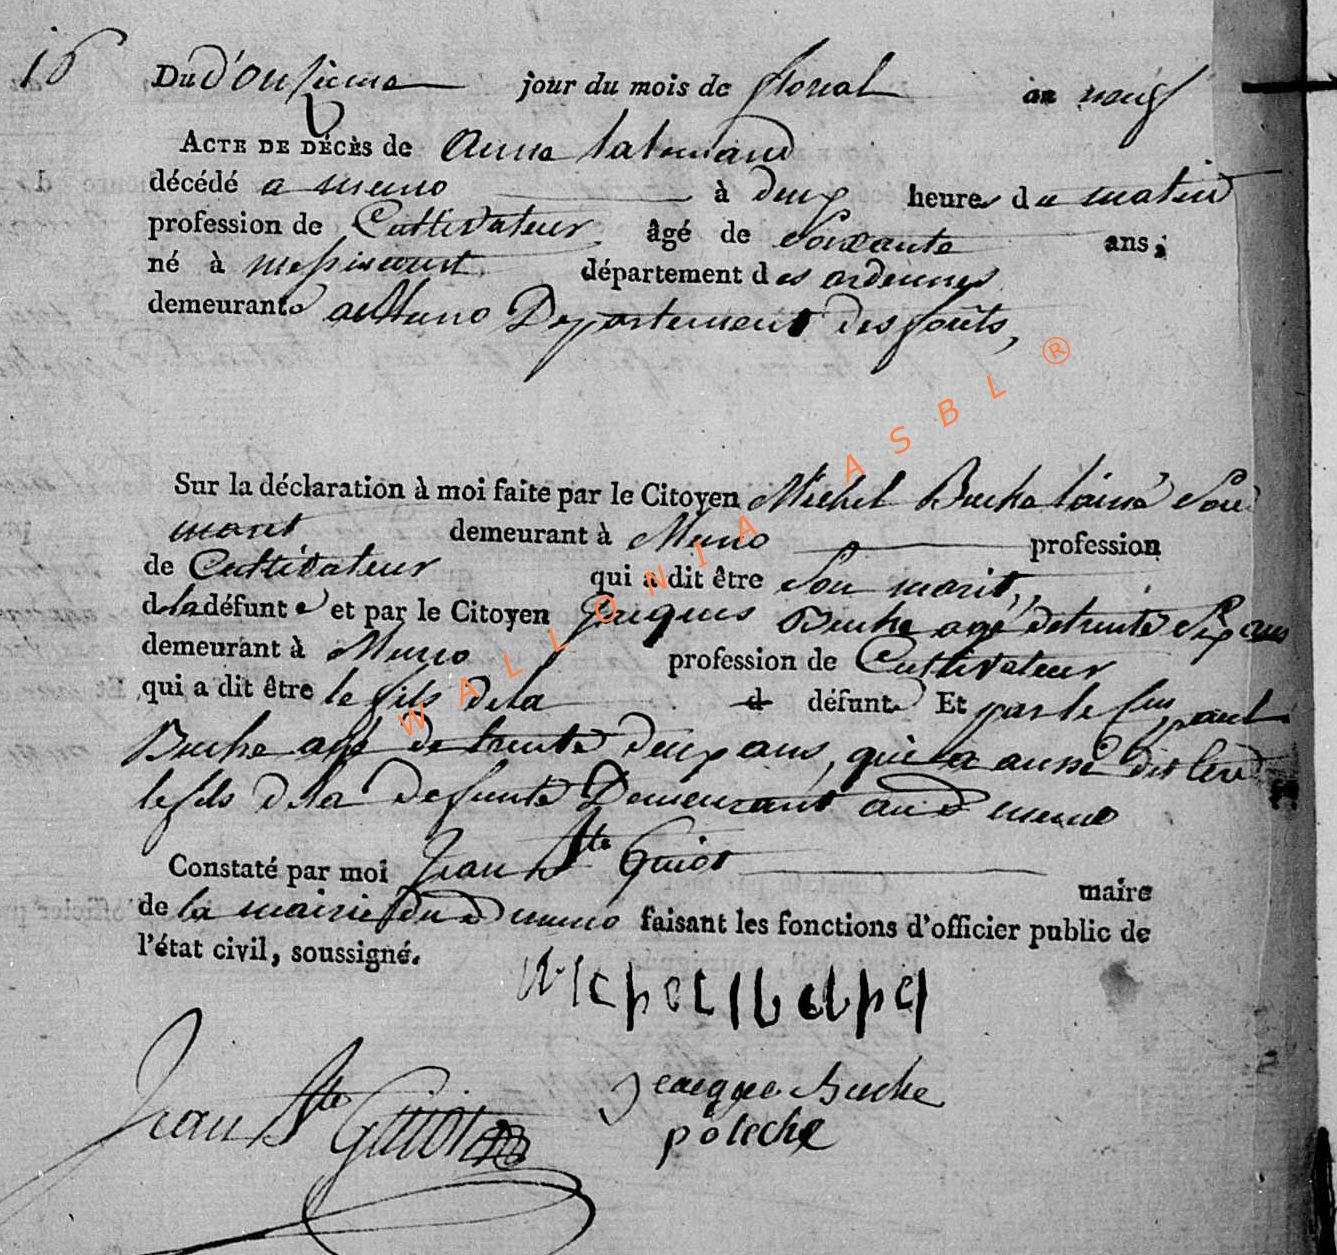 16
Du d'onsieme jour du mois de floreal an neuf
ACTE DE DÉCÈS de anne lalemand
décédé a muno à deux heures du matin
profession de Cultivateur âgé de soixante ans,
né à messincourt département des ardennes
demeurante a Muno Departement des forêts,
Sur la déclaration à moi faite par le Citoyen Michel Buche lainé Son
marit demeurant à Muno profession
de Cultivateur qui a dit être Son marit,
de la défunte et par le Citoyen Jacques Buche agé de trente Six ans
demeurant à Muno profession de Cultivateur
qui a dit être le fils de la d défunte Et par le Cen paul
Buche agé de trente deux ans, qui a aussi dit être
le fils de la defunte Demeurant aud muno
Constaté par moi Jean Bte Guiot maire
de la mairie dud muno faisant les fonctions d'officier public de
l'état civil, soussigné.
Jean Bte Guiot
Jacque Buche
WALLONIA ASBL ®